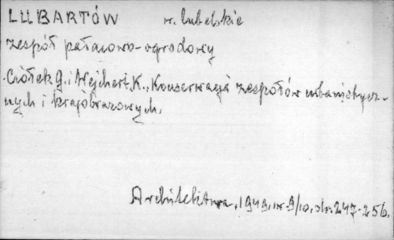 LUBARTÓW w. lubelskie
zespół pałacowo-ogrodowy
Ciołek G. i Wejchert K., Konserwacja zespołów urbanistycz-
nych i krajobrazowych.
Architektura, 1949, nr 9/10, str. 247-256.